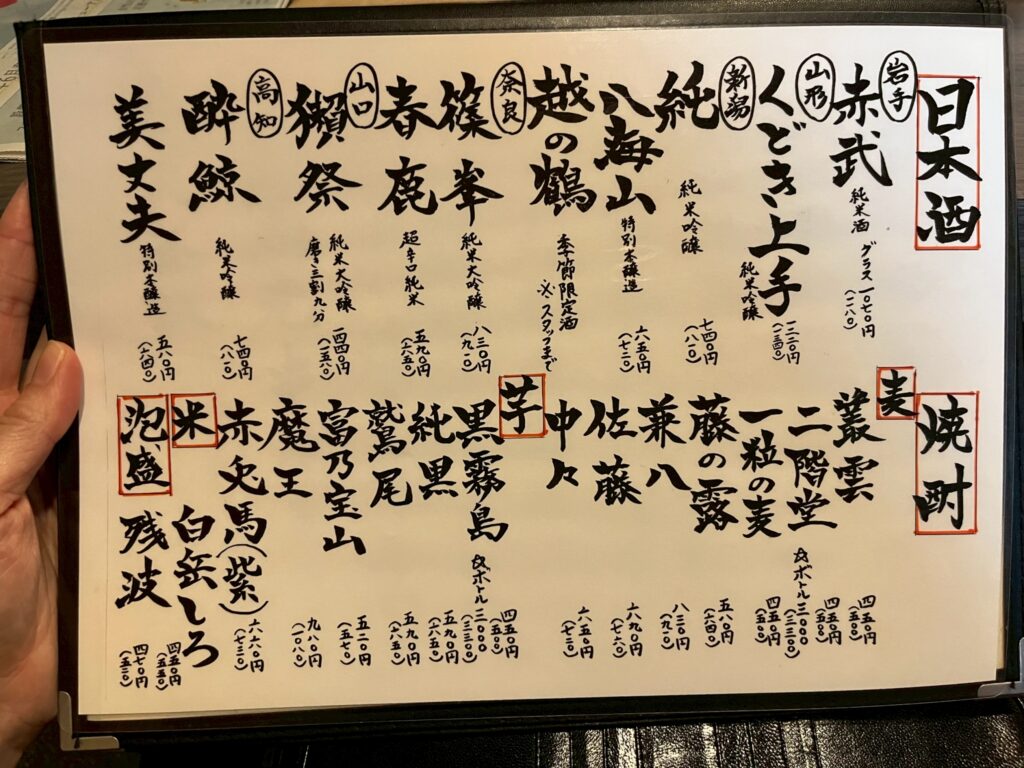 日本酒
岩手
赤武 純米酒 グラス 一〇七〇円 (一一八〇)
山形
くどき上手 純米吟醸
新潟
純 純米吟醸 七四〇円 (八一〇)
八海山 特別本醸造 六五〇円 (七二〇)
越の鶴 季節限定酒 ※スタッフまで
奈良
篠峯 純米大吟醸 八三〇円 (九一〇)
春鹿 超辛口純米 五九〇円 (六五〇)
山口
獺祭 純米大吟醸 磨き三割九分 一四四〇円 (一五八〇)
高知
酔鯨 純米吟醸 七四〇円 (八一〇)
美丈夫 特別本醸造 五八〇円 (六四〇)
焼酎
麦
叢雲 四五〇円 (五〇〇)
二階堂 四五〇円 (五〇〇)
☆ボトル 三〇〇〇 (三三〇〇)
一粒の麦 四五〇円 (五〇〇)
藤の露 五八〇円 (六四〇)
兼八 八三〇円 (九一〇)
佐藤 六九〇円 (七六〇)
中々 六五〇円 (七二〇)
芋
黒霧島 四五〇円 (五〇〇)
☆ボトル 三〇〇〇 (三三〇〇)
純黒 五九〇円 (六五〇)
鷲尾 五九〇円 (六五〇)
富乃宝山 五二〇円 (五七〇)
魔王 九八〇円 (一〇八〇)
赤兎馬(紫) 六六〇円 (七三〇)
米
白岳しろ 四五〇円 (五五〇)
泡盛
残波 四七〇円 (五二〇)